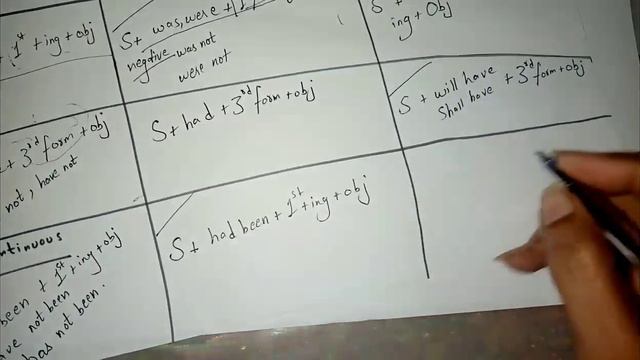 1st + ing + obj
S + was, were + 1st
negative was not
were not
S +
ing + Obj
+ 3rd form + obj
not, have not
S + had + 3rd form + obj
S + will have + 3rd form + obj
Shall have
ntinuous
been + 1st + ing + obj
have not been
has not been.
S + had been + 1st + ing + obj